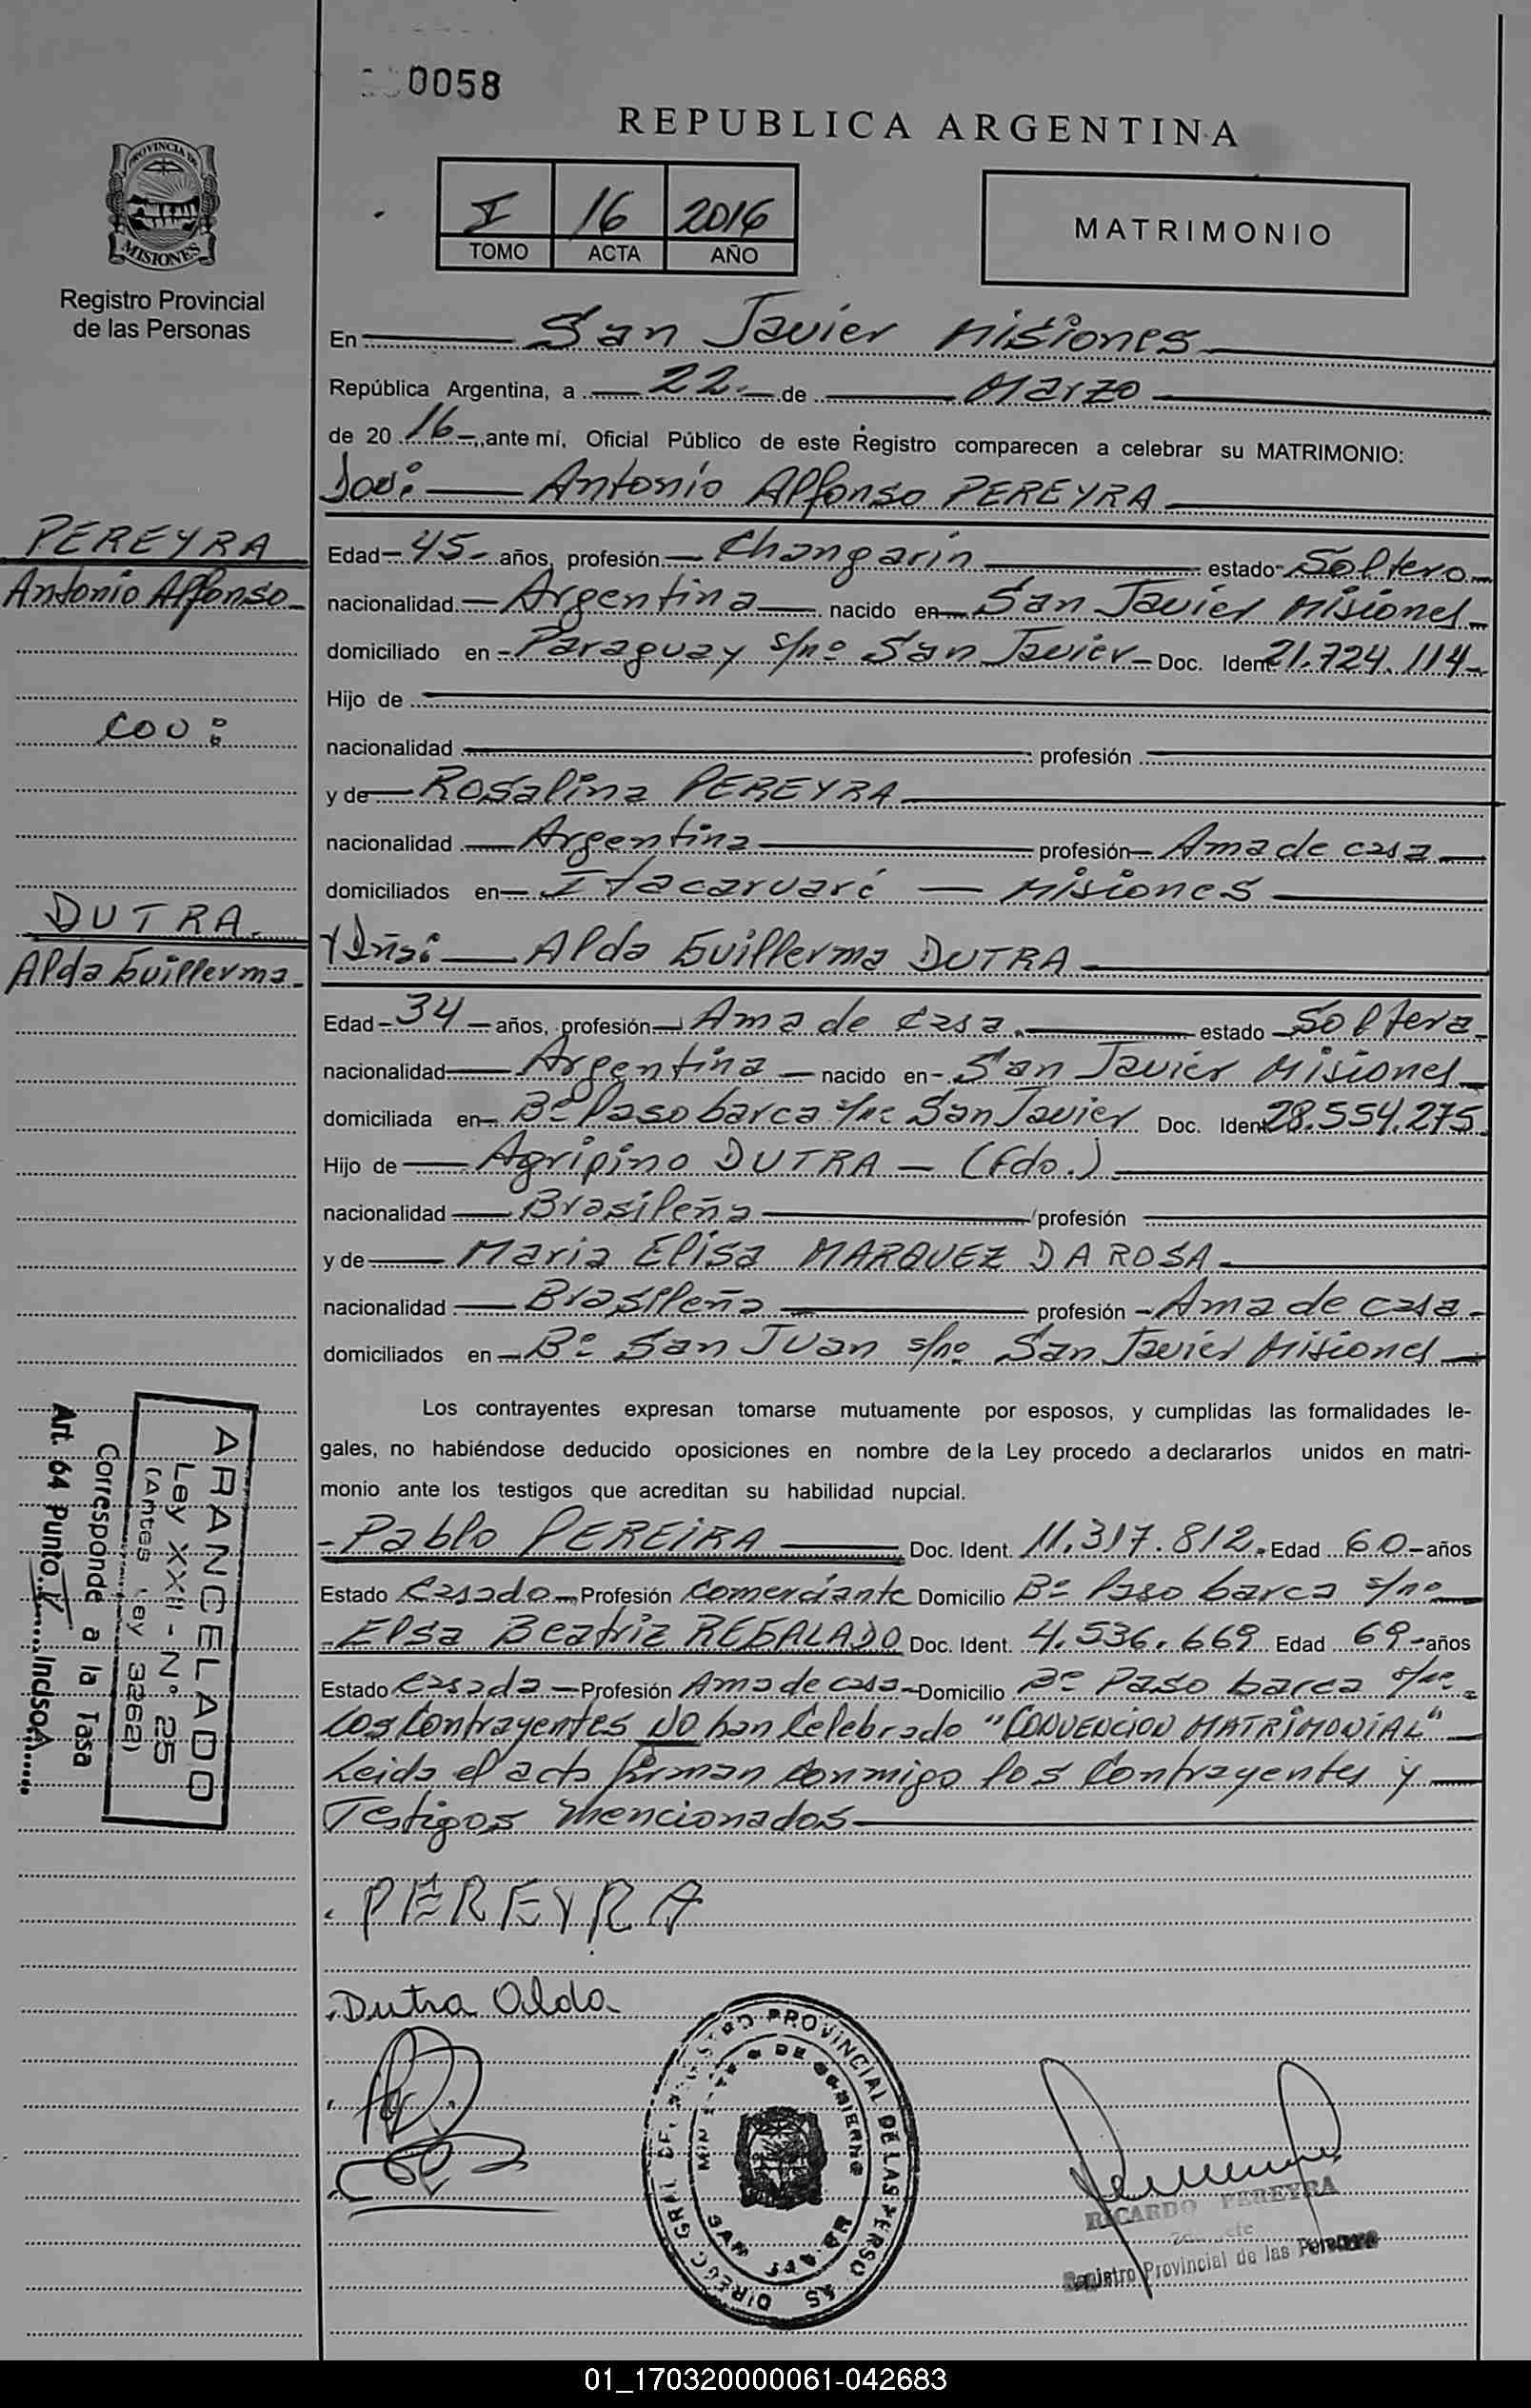 0058
REPUBLICA ARGENTINA
PROVINCIA DE
MISIONES
Registro Provincial
de las Personas
I 16 2016
TOMO ACTA AÑO
MATRIMONIO
En San Javier Misiones
República Argentina, a 22 de Marzo
de 20 16, ante mí, Oficial Público de este Registro comparecen a celebrar su MATRIMONIO:
Don: Antonio Alfonso PEREYRA
PEREYRA
Antonio Alfonso
Edad 45 años, profesión Changarin estado Soltero
nacionalidad Argentina nacido en San Javier Misiones
domiciliado en Paraguay s/nº San Javier Doc. Ident. 21.724.114
Hijo de
con:
nacionalidad profesión
y de Rosalina PEREYRA
nacionalidad Argentina profesión Ama de casa
domiciliados en Itacaruaré - Misiones
DUTRA
Alda Guillerma
Y Dña: Alda Guillerma DUTRA
Edad 34 años, profesión Ama de casa. estado Soltera
nacionalidad Argentina nacido en San Javier Misiones
domiciliada en Bº Paso barca s/nº San Javier Doc. Ident 28.554.275
Hijo de Agripino DUTRA - (fdo.)
nacionalidad Brasileña profesión
y de Maria Elisa MARQUEZ DA ROSA
nacionalidad Brasileña profesión Ama de casa
domiciliados en Bº San Juan s/nº San Javier Misiones
Los contrayentes expresan tomarse mutuamente por esposos, y cumplidas las formalidades le-
gales, no habiéndose deducido oposiciones en nombre de la Ley procedo a declararlos unidos en matri-
monio ante los testigos que acreditan su habilidad nupcial.
Pablo PEREIRA Doc. Ident. 11.317.812. Edad 60 años
Estado Casado Profesión Comerciante Domicilio Bº Paso barca s/nº
Elsa Beatriz REGALADO Doc. Ident. 4.536.669 Edad 69 años
Estado Casada Profesión Ama de casa Domicilio Bº Paso barca s/nº
Los Contrayentes NO han Celebrado "CONVENCION MATRIMONIAL"
Leida el acta firman conmigo los Contrayentes y
Testigos mencionados
ARANCELADO
Ley XXII - Nº 25
(Antes Ley 3262)
Corresponde a la Tasa
Art. 64 Punto V Inciso A
PEREYRA
Dutra Alda
DIRECC. GRAL. DEL REGISTRO PROVINCIAL DE LAS PERSONAS
MINISTERIO DE GOBIERNO
SAN JAVIER
RICARDO PEREYRA
Registro Provincial de las Personas
01_170320000061-042683